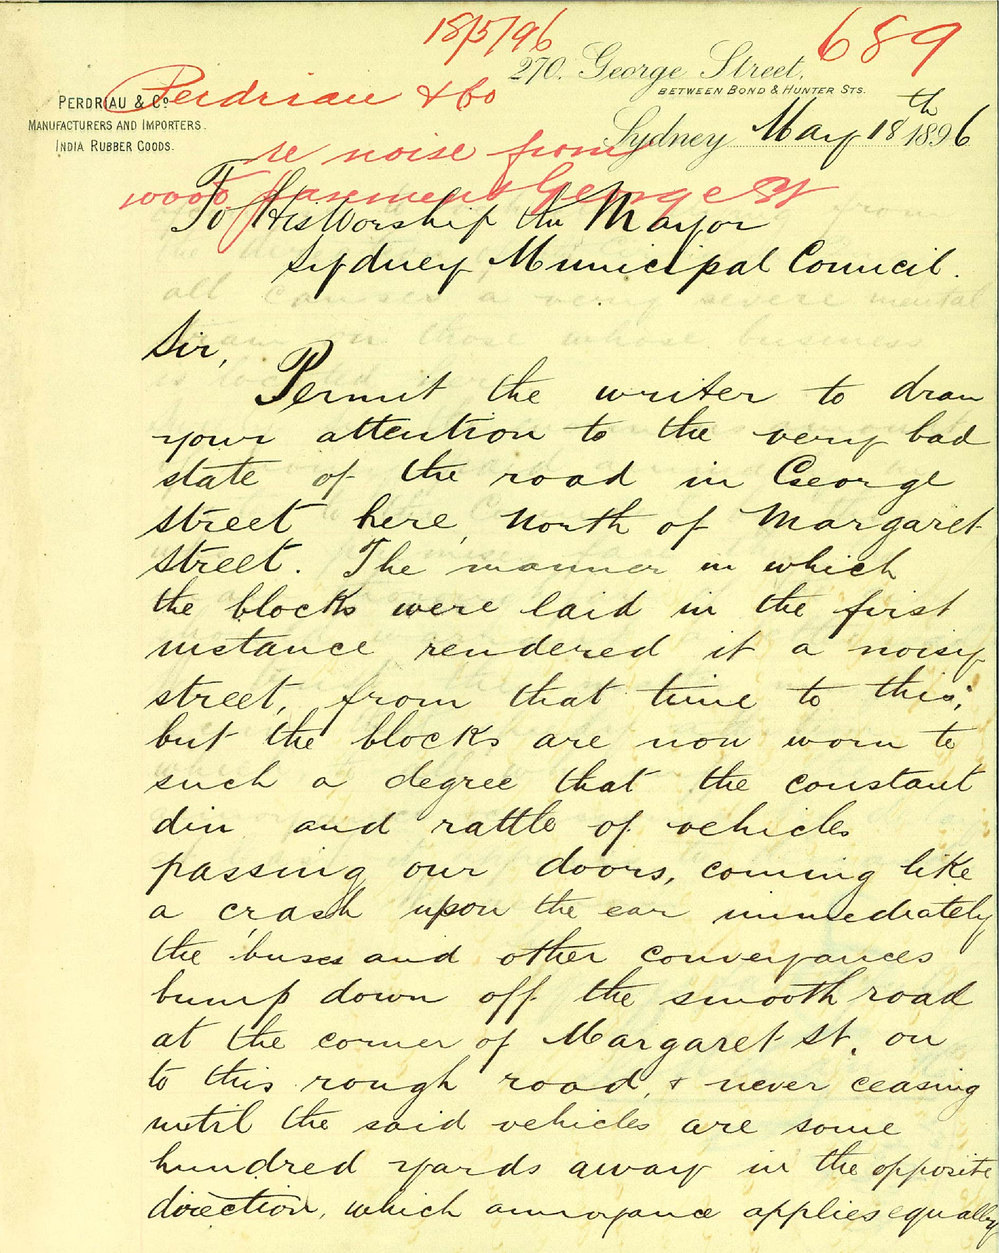 18/5/96
689
270. George Street,
BETWEEN BOND & HUNTER STS.
PERDRIAU & Co
MANUFACTURERS AND IMPORTERS.
INDIA RUBBER GOODS.
Perdriau & Co
Sydney May 18th 1896
re noise from
Pavement George St
To His Worship the Mayor
Sydney Municipal Council.
Sir,
Permit the writer to draw
your attention to the very bad
state of the road in George
street here, North of Margaret
street. The manner in which
the blocks were laid in the first
instance rendered it a noisy
street, from that time to this;
but the blocks are now worn to
such a degree that the constant
din and rattle of vehicles
passing our doors, coming like
a crash upon the ear immediately
the 'buses and other conveyances
bump down off the smooth road
at the corner of Margaret St. on
to this rough road, & never ceasing
until the said vehicles are some
hundred yards away in the opposite
direction, which annoyance applies equally